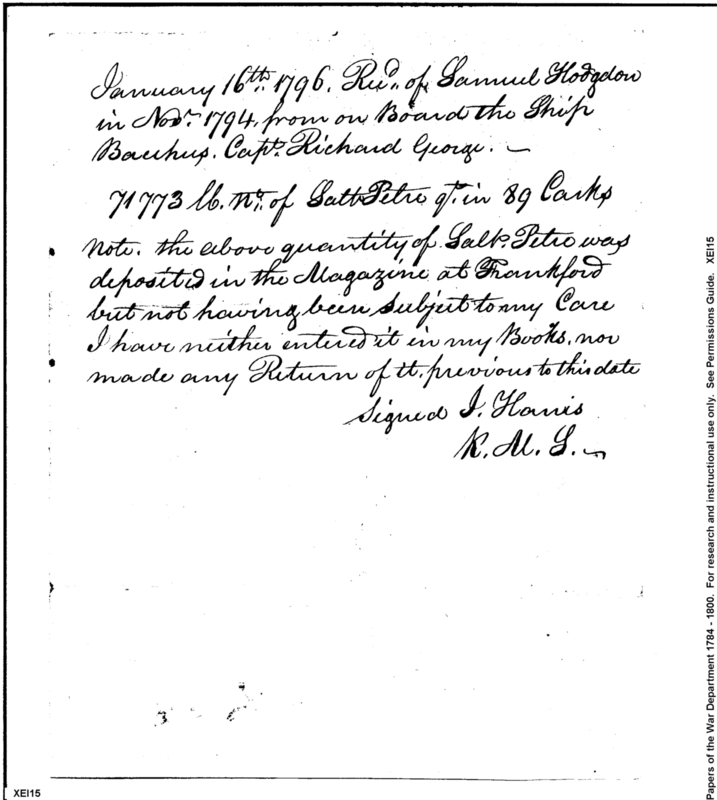 January 16th. 1796. Recd. of Samuel Hodgdon
in Novr. 1794, from on Board the Ship
Bacchus. Capt. Richard George. —
71773 lb. Nt. of Salt Petre qt. in 89 Casks
Note. the above quantity of Salt. Petre was
deposited in the Magazine at Frankford
but not having been subject to my Care
I have neither entered it in my Books, nor
made any Return of it, previous to this date
Signed J. Harris
K. M. S. —
XEI15
Papers of the War Department 1784 - 1800. For research and instructional use only. See Permissions Guide. XEI15